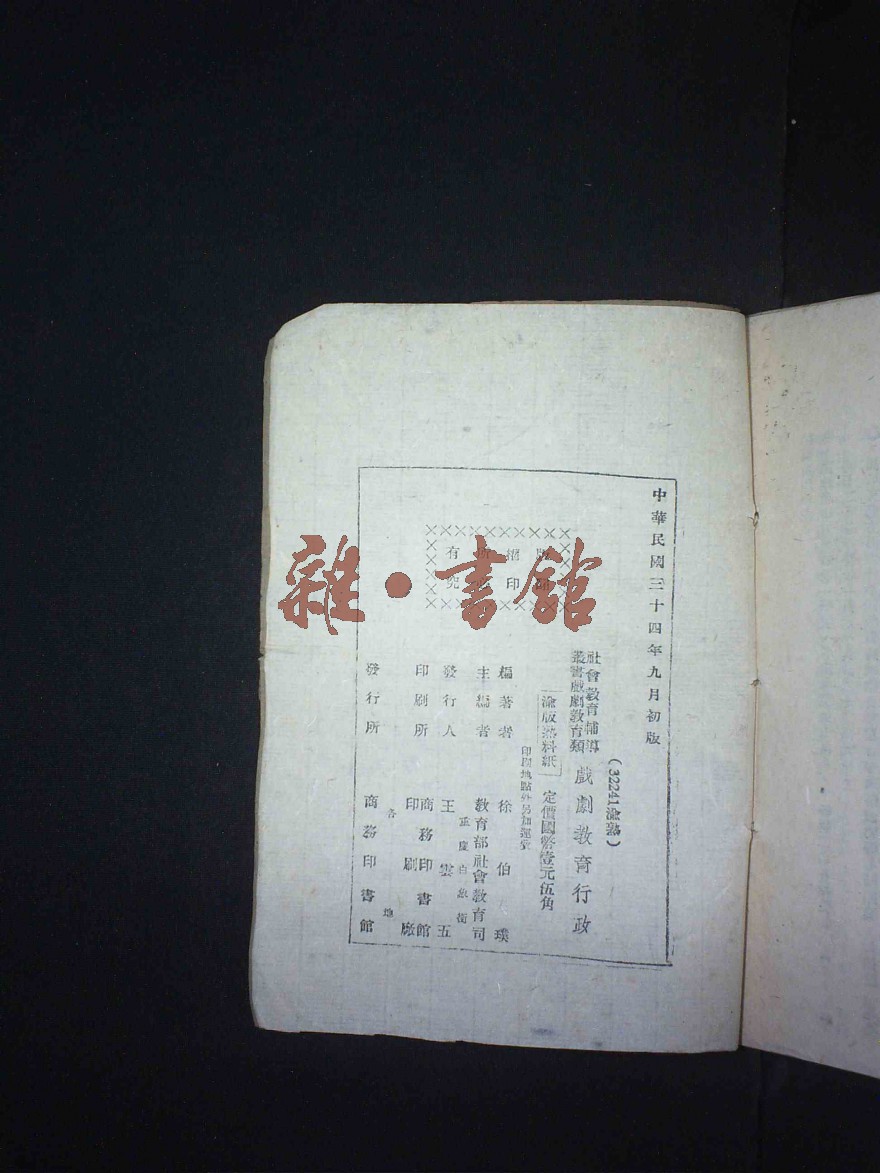 中華民國三十四年九月初版
(32241渝熟)
社會教育輔導
叢書戲劇教育類
戲劇教育行政
渝版熟料紙
定價國幣壹元伍角
印刷地點外另加運費
編著者 徐伯璞
主編者 教育部社會教育司
重慶白象街
發行人 王雲五
印刷所 商務印書館
印刷廠
各地
發行所 商務印書館
版權所有
翻印必究
雜·書館